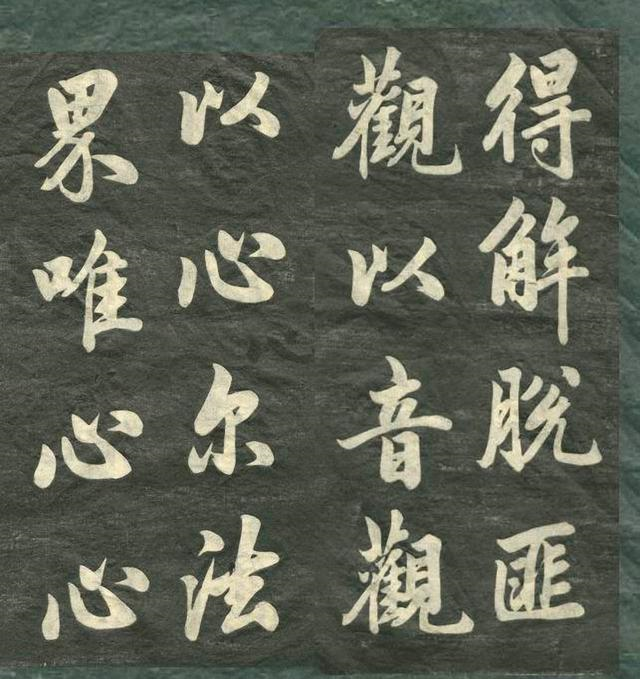 得解脱匪
觀以音觀
以心尔法
界唯心心